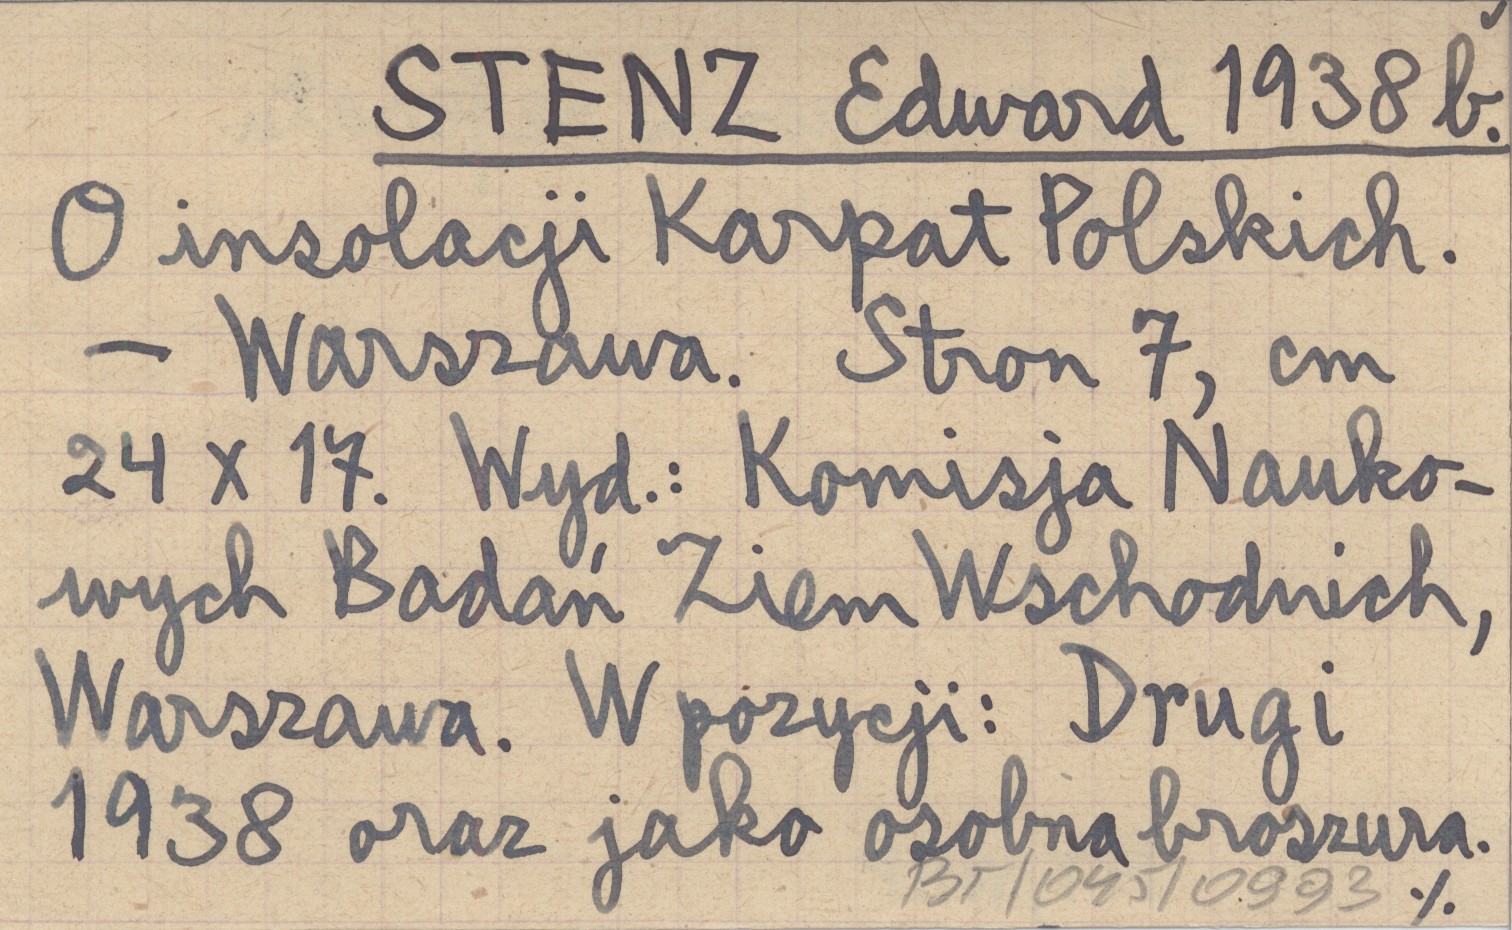 STENZ Edward 1938 b.
O insolacji Karpat Polskich.
— Warszawa. Stron 7, cm
24 x 17. Wyd.: Komisja Nauko-
wych Badań Ziem Wschodnich,
Warszawa. W pozycji: Drugi
1938 oraz jako osobna broszura.
BT/045/0993 ./.